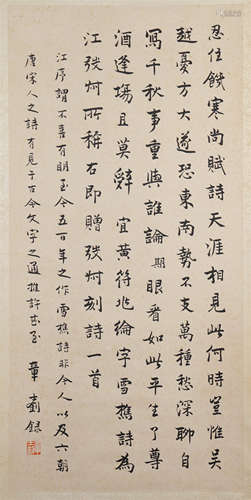 忍住飢寒尚賦詩天涯相見此何時豈惟吳
越憂方大遂恐東南勢不支萬種愁深聊自
寫千秋事重與誰論期眼看如此平生了尊
酒逢場且莫辭 宜黃符兆綸字雪樵詩為
江弢叔所稱右即贈弢叔刻詩一首
江序謂不喜有明至今五百年之作雪樵詩非今人以及六朝
唐宋人之詩有見于古今文字之通推許甚至 章劉錄